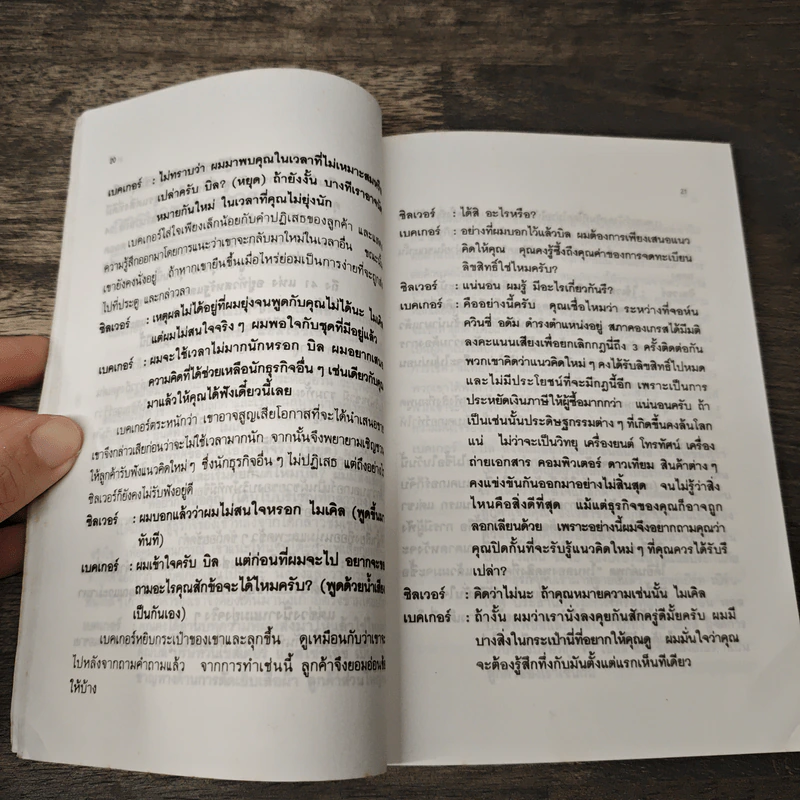 20
เบคเกอร์ : ไม่ทราบว่า ผมมาพบคุณในเวลาที่ไม่เหมาะสม
เปล่าครับ บิล? (หยุด) ถ้ายังงั้น บางทีเราอาจ
หมายกันใหม่ ในเวลาที่คุณไม่ยุ่งนัก
เบคเกอร์ใส่ใจเพียงเล็กน้อยกับคำปฏิเสธของลูกค้า และ
ความรู้สึกออกมาโดยการแนะว่าเขาจะกลับมาใหม่ในเวลาอื่น ขณะนั้น
เขายังคงนั่งอยู่ ถ้าหากเขายืนขึ้นเมื่อไหร่ย่อมเป็นการง่ายที่จะถูก
ไปที่ประตู และกล่าวลา
ซิลเวอร์ : เหตุผลไม่ได้อยู่ที่ผมยุ่งจนพูดกับคุณไม่ได้นะ
แต่ผมไม่สนใจจริงๆ ผมพอใจกับชุดที่มีอยู่แล้ว
เบคเกอร์ : ผมจะใช้เวลาไม่มากนักหรอก บิล ผมอยาก
ความคิดที่ได้ช่วยเหลือนักธุรกิจอื่นๆ เช่นเดียวกับ
มาแล้วให้คุณได้ฟังเดี๋ยวนี้เลย
เบคเกอร์ตระหนักว่า เขาอาจสูญเสียโอกาสที่จะได้นำเสนอ
เขาจึงกล่าวเสียก่อนว่าจะไม่ใช้เวลามากนัก จากนั้นจึงพยายามเชิญ
ให้ลูกค้ารับฟังแนวคิดใหม่ๆ ซึ่งนักธุรกิจอื่นๆ ไม่ปฏิเสธ แต่ถึงอย่าง
ซิลเวอร์ก็ยังคงไม่รับฟังอยู่ดี
ซิลเวอร์ : ผมบอกแล้วว่าผมไม่สนใจหรอก ไมเคิล (พูดขึ้นมา
ทันที)
เบคเกอร์ : ผมเข้าใจครับ บิล แต่ก่อนที่ผมจะไป อยากจะ
ถามอะไรคุณสักข้อจะได้ไหมครับ? (พูดด้วยน้ำเสียง
เป็นกันเอง)
เบคเกอร์หยิบกระเป๋าของเขาและลุกขึ้น ดูเหมือนกับว่าเขา
ไปหลังจากถามคำถามแล้ว จากการทำเช่นนี้ ลูกค้าจึงยอมอ่อนข้อ
ให้บ้าง
21
ซิลเวอร์ : ได้สิ อะไรหรือ?
เบคเกอร์ : อย่างที่ผมบอกไว้แล้วบิล ผมต้องการเพียงเสนอแนว
คิดให้คุณ คุณคงรู้ซึ้งถึงคุณค่าของการจดทะเบียน
ลิขสิทธิ์ใช่ไหมครับ?
ซิลเวอร์ : แน่นอน ผมรู้ มีอะไรเกี่ยวกันรึ?
เบคเกอร์ : คืออย่างนี้ครับ คุณเชื่อไหมว่า ระหว่างที่จอห์น
ควินซี่ อดัม ดำรงตำแหน่งอยู่ สภาคองเกรสได้มีมติ
ลงคะแนนเสียงเพื่อยกเลิกกฎนี้ถึง 3 ครั้งติดต่อกัน
พวกเขาคิดว่าแนวคิดใหม่ๆ คงได้รับลิขสิทธิ์ไปหมด
และไม่มีประโยชน์ที่จะมีกฎนี้อีก เพราะเป็นการ
ประหยัดเงินภาษีให้ผู้ซื้อมากกว่า แน่นอนครับ ถ้า
เป็นเช่นนั้นประดิษฐกรรมต่างๆ ที่เกิดขึ้นคงลืมโลก
แน่ ไม่ว่าจะเป็นวิทยุ เครื่องยนต์ โทรทัศน์ เครื่อง
ถ่ายเอกสาร คอมพิวเตอร์ ดาวเทียม สินค้าต่างๆ
คงแข่งขันกันออกมาอย่างไม่สิ้นสุด จนไม่รู้ว่าสิ่ง
ไหนคือสิ่งดีที่สุด แม้แต่ธุรกิจของคุณก็อาจถูก
ลอกเลียนด้วย เพราะอย่างนี้ผมจึงอยากถามคุณว่า
คุณปิดกั้นที่จะรับรู้แนวคิดใหม่ๆ ที่คุณควรได้รับรึ
เปล่า?
ซิลเวอร์ : คิดว่าไม่นะ ถ้าคุณหมายความเช่นนั้น ไมเคิล
เบคเกอร์ : ถ้างั้น ผมว่าเรานั่งลงคุยกันสักครู่ดีมั้ยครับ ผมมี
บางสิ่งในกระเป๋านี่ที่อยากให้คุณดู ผมมั่นใจว่าคุณ
จะต้องรู้สึกทึ่งกับมันตั้งแต่แรกเห็นทีเดียว